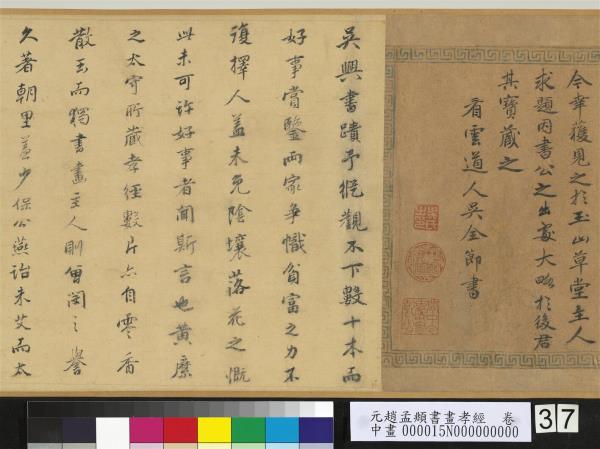 今幸獲見之於玉山草堂主人
求題因書公之出處大略於後君
其寶藏之
看雲道人吳全節書
吳興書蹟予縱觀不下數十本而
好事賞鑒而家爭幟貧富之力不
復擇人蓋未免陰壤落花之慨
此未可許好事者聞斯言也黃麋
之太守所藏孝經數片六自零香
散玉而獨書畫主人則曾閔之譽
久著朝里蓋少保公燕詒未艾而太
元趙孟頫書畫孝經 卷
中畫 000015N000000000
37